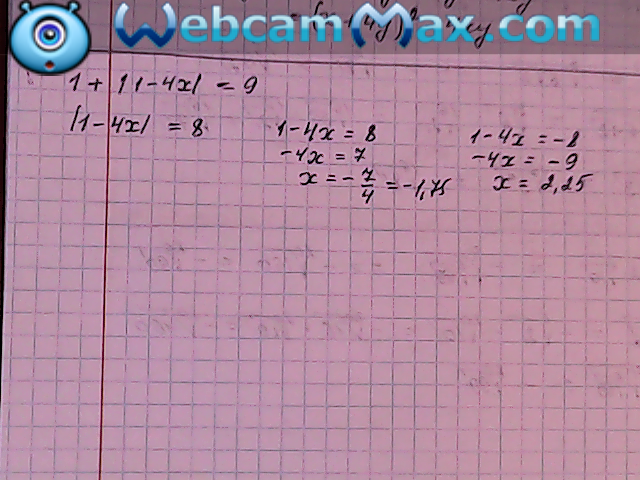 WebcamMax.com
1 + |1 - 4x| = 9
|1 - 4x| = 8
1 - 4x = 8
-4x = 7
x = -7/4 = -1,75
1 - 4x = -8
-4x = -9
x = 2,25